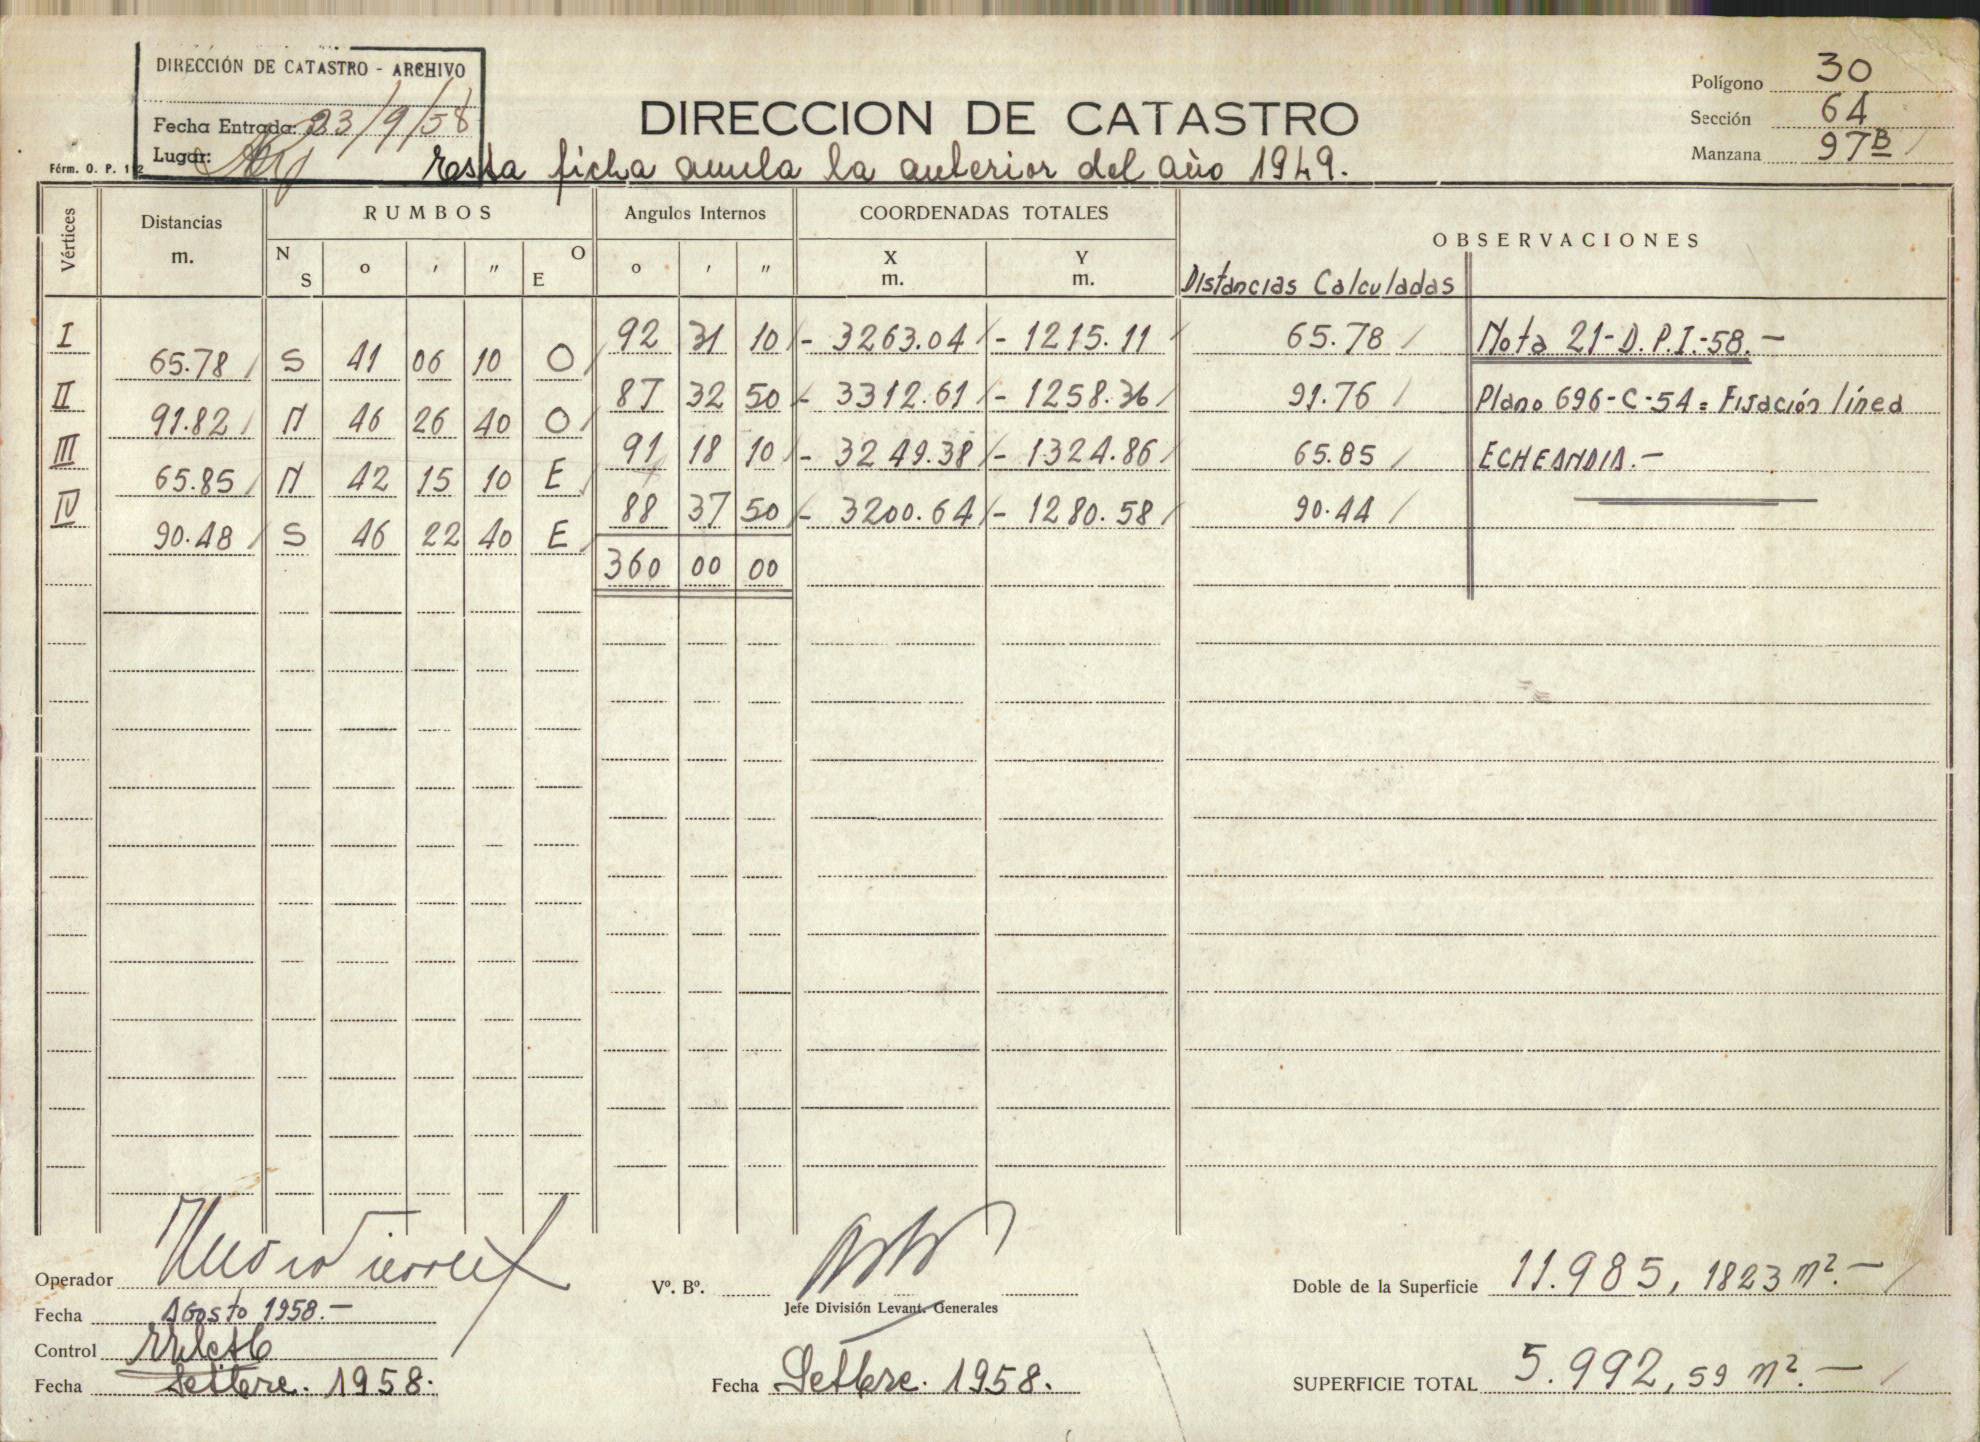 DIRECCIÓN DE CATASTRO - ARCHIVO
Fecha Entrada: 23/9/58
Lugar:
Fórm. O. P. 112
DIRECCION DE CATASTRO
Esta ficha anula la anterior del año 1949.
Polígono 30
Sección 64
Manzana 97B
Vértices Distancias m. RUMBOS Angulos Internos COORDENADAS TOTALES OBSERVACIONES
N S o ′ ″ E O o ′ ″ X m. Y m. Distancias Calculadas
I 92 31 10 - 3263.04 - 1215.11 65.78 Nota 21-D.P.I.-58.-
65.78 S 41 06 10 O
II 87 32 50 - 3312.61 - 1258.36 91.76 Plano 696-C-54 = Fijación línea
91.82 N 46 26 40 O
III 91 18 10 - 3249.38 - 1324.86 65.85 ECHEANDIA.-
65.85 N 42 15 10 E
IV 88 37 50 - 3200.64 - 1280.58 90.44
90.48 S 46 22 40 E
360 00 00
Operador
Fecha Agosto 1958.-
Control
Fecha Setbre. 1958.
Vº. Bº.
Jefe División Levant. Generales
Fecha Setbre. 1958.
Doble de la Superficie 11.985, 1823 m².-
SUPERFICIE TOTAL 5.992, 59 m².-